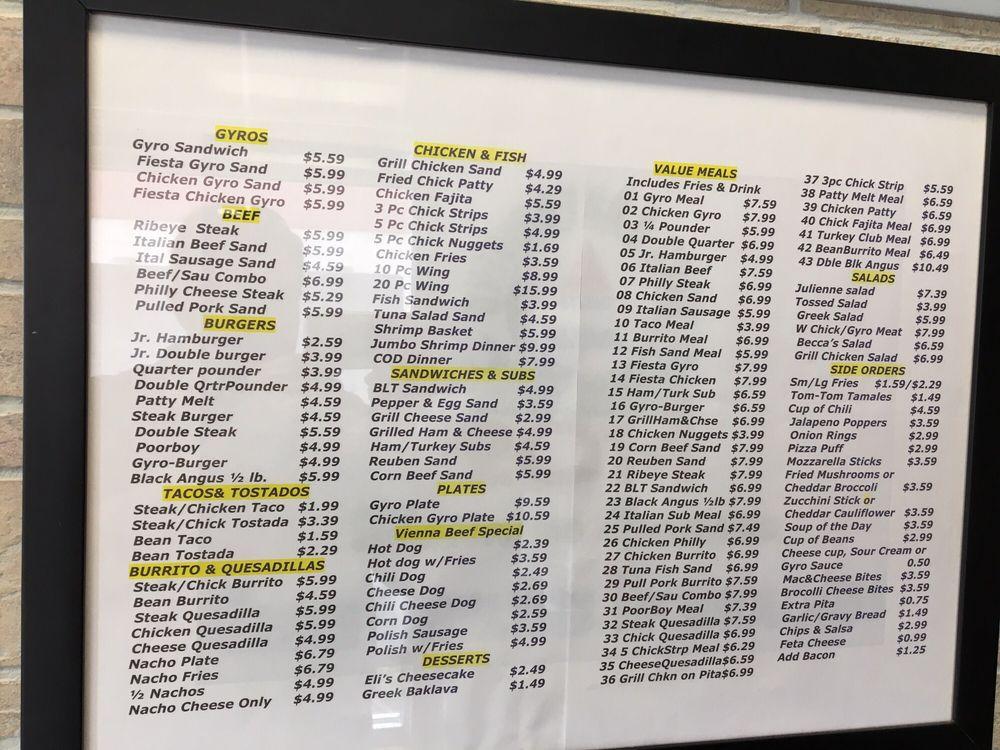 GYROS
Gyro Sandwich $5.59
Fiesta Gyro Sand $5.99
Chicken Gyro Sand $5.99
Fiesta Chicken Gyro $5.99
BEEF
Ribeye Steak $5.99
Italian Beef Sand $5.99
Ital Sausage Sand $4.59
Beef/Sau Combo $6.99
Philly Cheese Steak $5.29
Pulled Pork Sand $5.99
BURGERS
Jr. Hamburger $2.59
Jr. Double burger $3.99
Quarter pounder $3.99
Double QrtrPounder $4.99
Patty Melt $4.59
Steak Burger $4.59
Double Steak $5.59
Poorboy $4.99
Gyro-Burger $4.99
Black Angus ½ lb. $5.99
TACOS& TOSTADOS
Steak/Chicken Taco $1.99
Steak/Chick Tostada $3.39
Bean Taco $1.59
Bean Tostada $2.29
BURRITO & QUESADILLAS
Steak/Chick Burrito $5.99
Bean Burrito $4.59
Steak Quesadilla $5.99
Chicken Quesadilla $5.99
Cheese Quesadilla $4.99
Nacho Plate $6.79
Nacho Fries $6.79
½ Nachos $4.99
Nacho Cheese Only $4.99
CHICKEN & FISH
Grill Chicken Sand $4.99
Fried Chick Patty $4.29
Chicken Fajita $5.59
3 Pc Chick Strips $3.99
5 Pc Chick Strips $4.99
5 Pc Chick Nuggets $1.69
Chicken Fries $3.59
10 Pc Wing $8.99
20 Pc Wing $15.99
Fish Sandwich $3.99
Tuna Salad Sand $4.59
Shrimp Basket $5.99
Jumbo Shrimp Dinner $9.99
COD Dinner $7.99
SANDWICHES & SUBS
BLT Sandwich $4.99
Pepper & Egg Sand $3.59
Grill Cheese Sand $2.99
Grilled Ham & Cheese $4.99
Ham/Turkey Subs $4.59
Reuben Sand $5.99
Corn Beef Sand $5.99
PLATES
Gyro Plate $9.59
Chicken Gyro Plate $10.59
Vienna Beef Special
Hot Dog $2.39
Hot dog w/Fries $3.59
Chili Dog $2.49
Cheese Dog $2.69
Chili Cheese Dog $2.69
Corn Dog $2.59
Polish Sausage $3.59
Polish w/Fries $4.99
DESSERTS
Eli's Cheesecake $2.49
Greek Baklava $1.49
VALUE MEALS
Includes Fries & Drink
01 Gyro Meal $7.59
02 Chicken Gyro $7.99
03 ¼ Pounder $5.99
04 Double Quarter $6.99
05 Jr. Hamburger $4.99
06 Italian Beef $7.59
07 Philly Steak $6.99
08 Chicken Sand $6.99
09 Italian Sausage $5.99
10 Taco Meal $3.99
11 Burrito Meal $6.99
12 Fish Sand Meal $5.99
13 Fiesta Gyro $7.99
14 Fiesta Chicken $7.99
15 Ham/Turk Sub $6.59
16 Gyro-Burger $6.59
17 GrillHam&Chse $6.99
18 Chicken Nuggets $3.99
19 Corn Beef Sand $7.99
20 Reuben Sand $7.99
21 Ribeye Steak $7.99
22 BLT Sandwich $6.99
23 Black Angus ½lb $7.99
24 Italian Sub Meal $6.99
25 Pulled Pork Sand $7.49
26 Chicken Philly $6.99
27 Chicken Burrito $6.99
28 Tuna Fish Sand $6.99
29 Pull Pork Burrito $7.59
30 Beef/Sau Combo $7.99
31 PoorBoy Meal $7.39
32 Steak Quesadilla $7.59
33 Chick Quesadilla $6.99
34 5 ChickStrp Meal $6.29
35 CheeseQuesadilla$6.59
36 Grill Chkn on Pita$6.99
37 3pc Chick Strip $5.59
38 Patty Melt Meal $6.59
39 Chicken Patty $6.59
40 Chick Fajita Meal $6.99
41 Turkey Club Meal $6.99
42 BeanBurrito Meal $6.49
43 Dble Blk Angus $10.49
SALADS
Julienne salad $7.39
Tossed Salad $3.99
Greek Salad $5.99
W Chick/Gyro Meat $7.99
Becca's Salad $6.59
Grill Chicken Salad $6.99
SIDE ORDERS
Sm/Lg Fries $1.59/$2.29
Tom-Tom Tamales $1.49
Cup of Chili $4.59
Jalapeno Poppers $3.59
Onion Rings $2.99
Pizza Puff $2.99
Mozzarella Sticks $3.59
Fried Mushrooms or
Cheddar Broccoli $3.59
Zucchini Stick or
Cheddar Cauliflower $3.59
Soup of the Day $3.59
Cup of Beans $2.99
Cheese cup, Sour Cream or
Gyro Sauce 0.50
Mac&Cheese Bites $3.59
Brocolli Cheese Bites $3.59
Extra Pita $0.75
Garlic/Gravy Bread $1.49
Chips & Salsa $2.99
Feta Cheese $0.99
Add Bacon $1.25